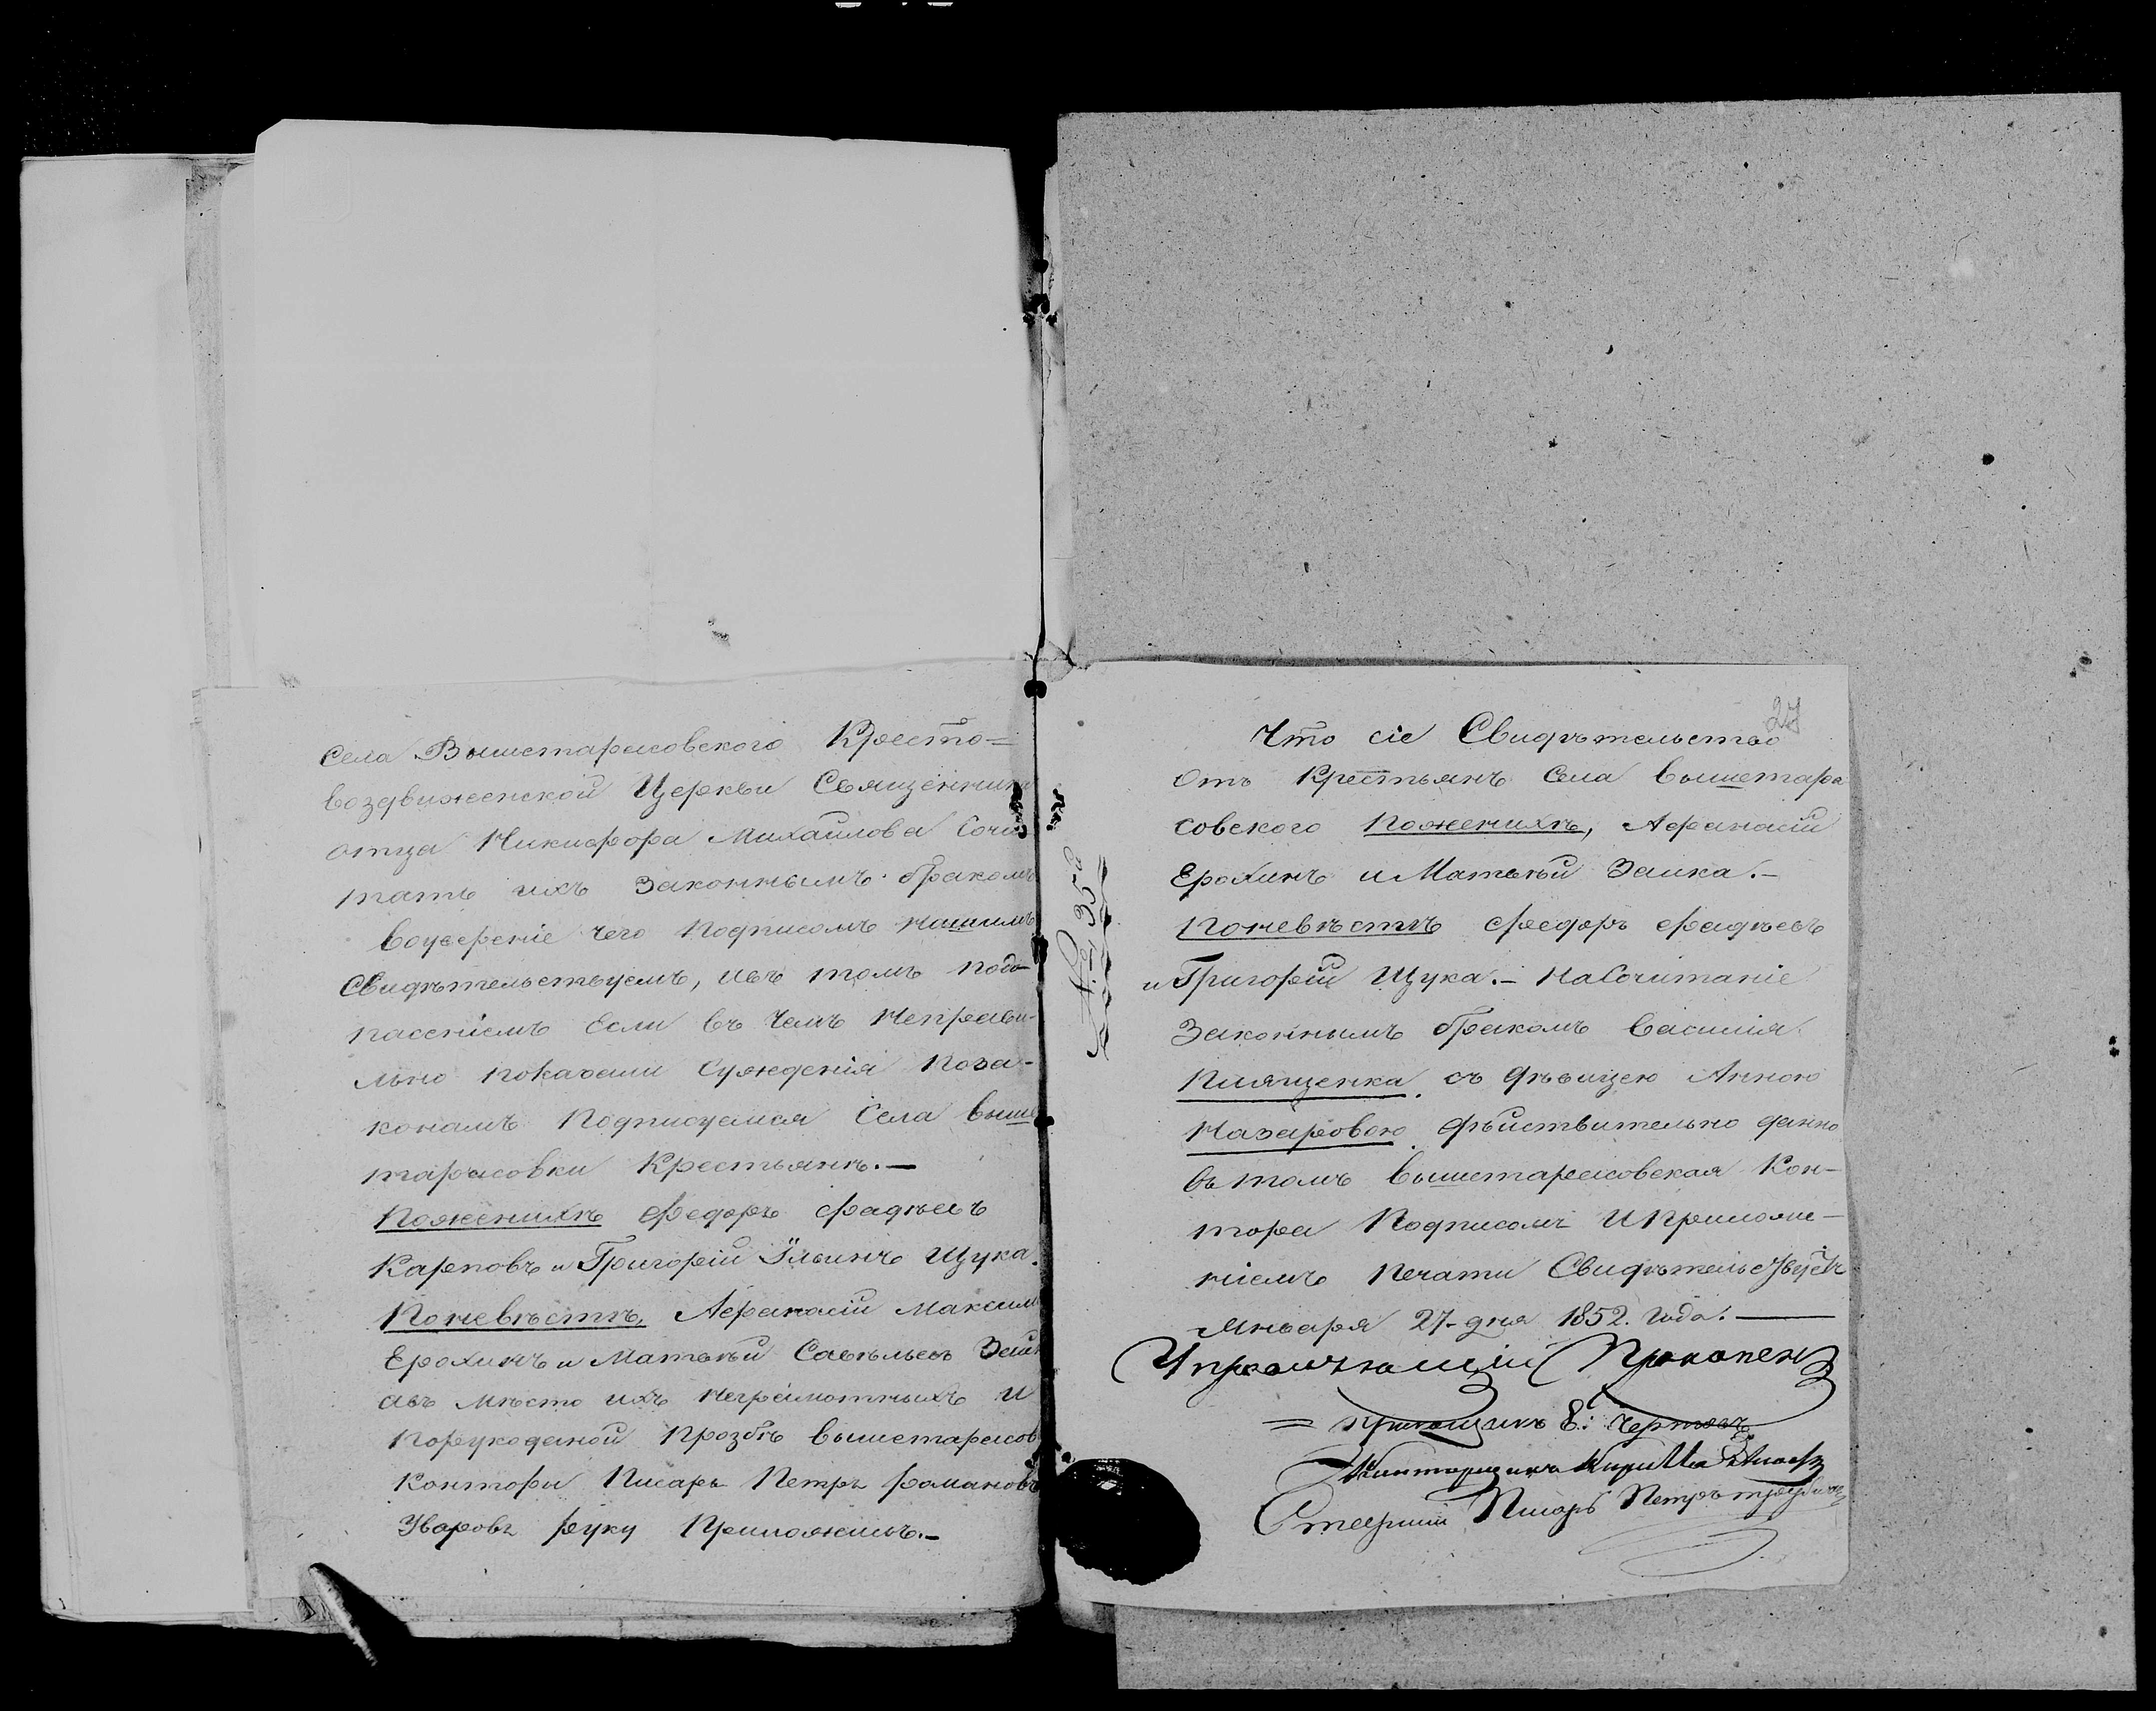 Села Вышетарасовского Кресто=
воздвиженской Церкви Священника
отца Никифора Михайлова Сочи
тать ихъ Законнымъ бракомъ
воуверение чего Подписомъ нашимъ
Свидѣтельствуемъ, ивъ томъ подо
пасениемъ Если въ чемъ Неправи-
льно показали Суждения Поза-
конамъ Подписуемся Села выше
тарасовки Крестьянъ.—
Поженихѣ Федоръ Фадѣевъ
Карповъ и Григорій Ильинъ Щука.
Поневѣстѣ, Афанасій Максим
Ерохинъ и Матвѣй Савѣльевъ Заик
авъ мѣсто ихъ неграмотныхъ и
Порукоданой Прозбѣ вышетарасов
Конторы Писарь Петръ Романовъ
Уваровъ руку Приложилъ.—
27
Что сіе Свидѣтельство
отъ Крестьянъ Села вышетара
совского Поженихѣ, Афанасій
Ерохинъ и Матвѣй Заика.—
Поневѣстѣ Федоръ Фадѣевъ
и Григорій Щука.— НаСочитаніе
Законнымъ бракомъ Василія
Пилященка съ дѣвицею Анною
Назаровою дѣйствительно данно
въ томъ вышетарасовская Кон-
тора Подписомъ И Приложе-
ніемъ Печати Свидѣтельствуетъ
Января 27-дня 1852. Года.—
Управляющий
= Прикащикъ Е:
Конторщикъ Кирилла
Старший Писарь Петръ
№ 35й